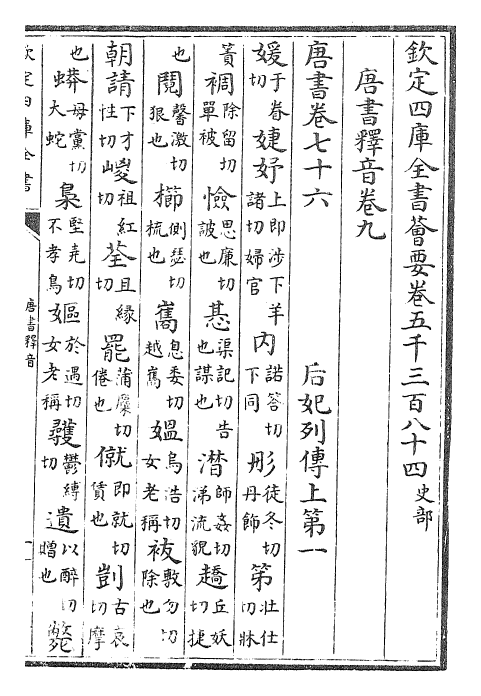 欽定四庫全書薈要卷五千三百八十四 史部
唐書釋音卷九
唐書卷七十六 后妃列傳上第一
媛于眷切婕妤上即涉下羊諸切婦官內諾答切下同彤徒冬切丹飾第壯仕切牀
簀裯除留切單被憸思廉切詖也惎渠記切告也謀也潸師姦切涕流貌趫丘妖切捷
也鬩馨激切狠也櫛側瑟切梳也嶲息委切越嶲媼烏浩切女老稱祓敷勿切除也
朝請下才性切嵏祖紅切荃且緣切罷蒲糜切倦也僦即就切賃也剴古哀切摩
也蟒母黨切大蛇梟堅堯切不孝鳥嫗於遇切女老稱彠鬱縛切遺以醉切贈也
欽定四庫全書
唐書釋音